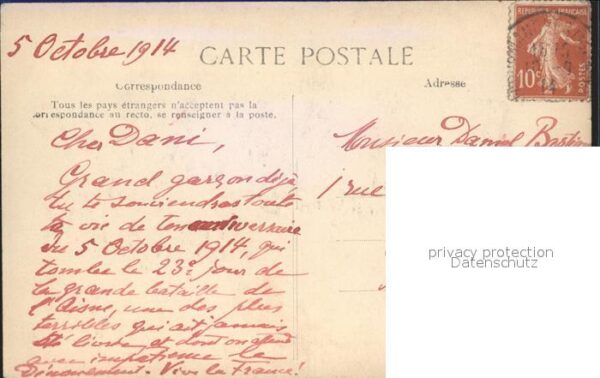 5 Octobre 1914
CARTE POSTALE
REPUBLIQUE FRANCAISE
10c
POSTES
Correspondance
Adresse
Tous les pays étrangers n'acceptent pas la
correspondance au recto, se renseigner à la poste.
Cher Dani,
Monsieur Daniel
1 rue
Grand garçon déjà
tu te souviendras toute
ta vie de ton anniversaire
du 5 Octobre 1914, qui
tombe le 23e jour de
la grande bataille de
l'Aisne, une des plus
terribles qui ait jamais
été livrée et dont on attend
avec impatience le
dénouement. Vive la France!
privacy protection
Datenschutz